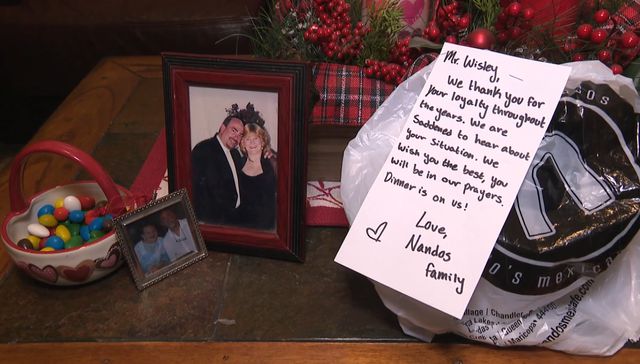 Mr. Wisley,
We thank you for
your loyalty throughout
the years. We are
Saddened to hear about
your Situation. We
wish you the best, you
will be in our prayers.
Dinner is on us!
Love,
Nandos
family
n
o's mexica
Village / Chandler
Queen
Maricopa
ndosmexcafe.com